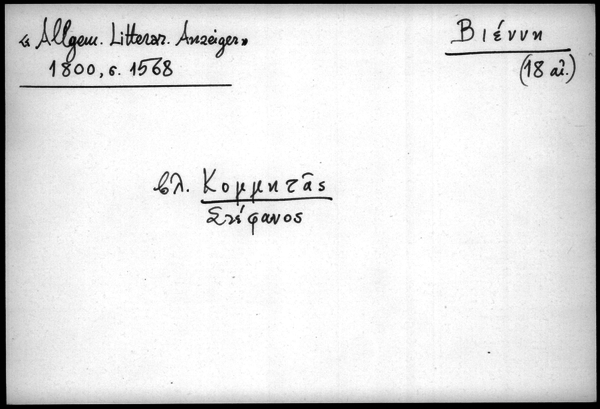 «Allgem. Litterar. Anzeiger»
1800, σ. 1568
Βιέννη
(18 αἰ.)
βλ. Κομμητᾶς
Στέφανος